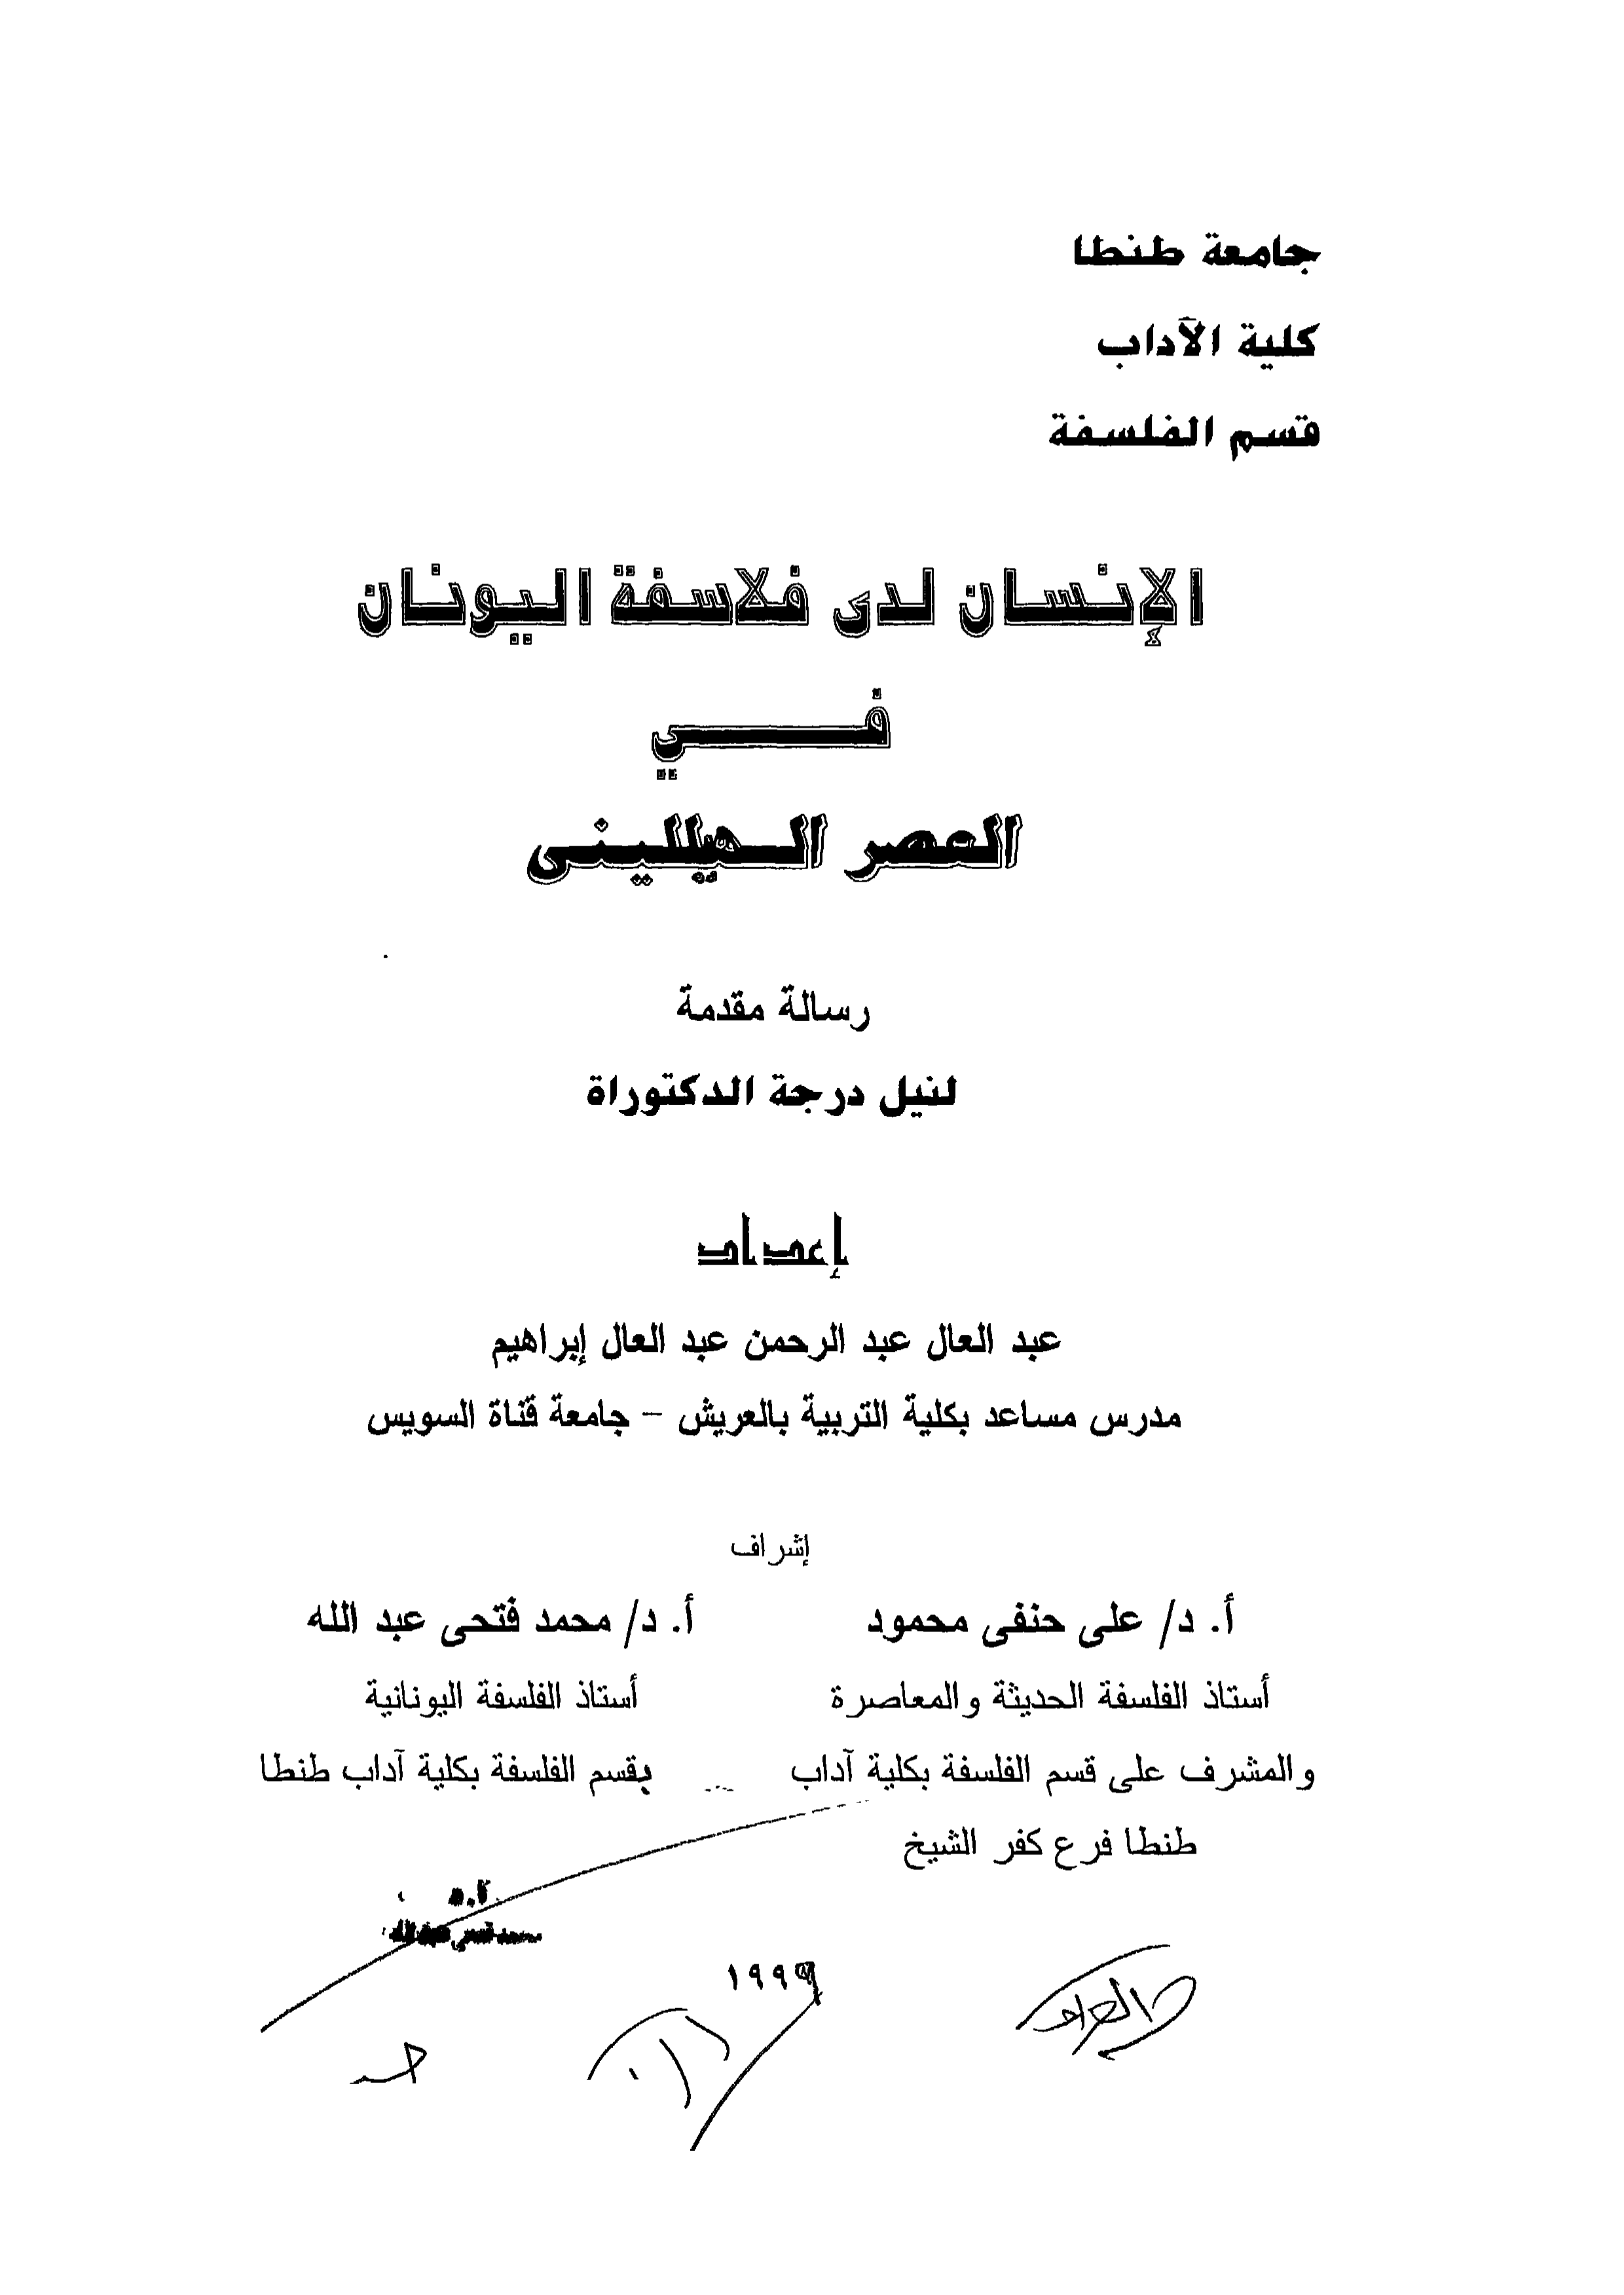 جامعة طنطا
كلية الآداب
قسم الفلسفة
الإنسان لدى فلاسفة اليونان
في
العصر الهيللينى
رسالة مقدمة
لنيل درجة الدكتوراة
إعداد
عبد العال عبد الرحمن عبد العال إبراهيم
مدرس مساعد بكلية التربية بالعريش – جامعة قناة السويس
إشراف
أ. د/ على حنفى محمود
أستاذ الفلسفة الحديثة والمعاصرة
والمشرف على قسم الفلسفة بكلية آداب
طنطا فرع كفر الشيخ
أ. د/ محمد فتحى عبد الله
أستاذ الفلسفة اليونانية
بقسم الفلسفة بكلية آداب طنطا